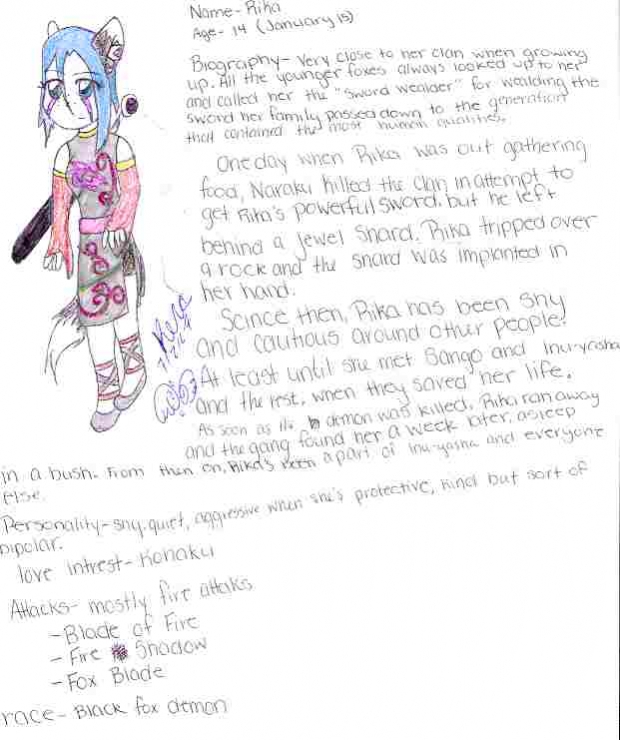 Name- Rika
Age- 14 (January 15)
Biography- Very close to her clan when growing
up. All the younger foxes always looked up to her
and called her the "Sword Wealder" for wealding the
sword her family passed down to the generation
that contained the most human qualities.
One day when Rika was out gathering
food, Naraku killed the clan in attempt to
get Rika's powerful sword, but he left
behind a jewel shard. Rika tripped over
a rock and the shard was implanted in
her hand.
Scince then, Rika has been shy
and cautious around other people.
At least until she met Sango and Inu-yasha
and the rest, when they saved her life.
As soon as the demon was killed, Rika ran away
and the gang found her a week later, asleep
in a bush. From then on, Rika's been a part of Inu-yasha and everyone
else.
Personality- shy, quiet, aggressive when she's protective, kind but sort of
bipolar.
love intrest- Kohaku
Attacks- mostly fire attaks
- Blade of Fire
- Fire Shadow
- Fox Blade
race- Black fox demon